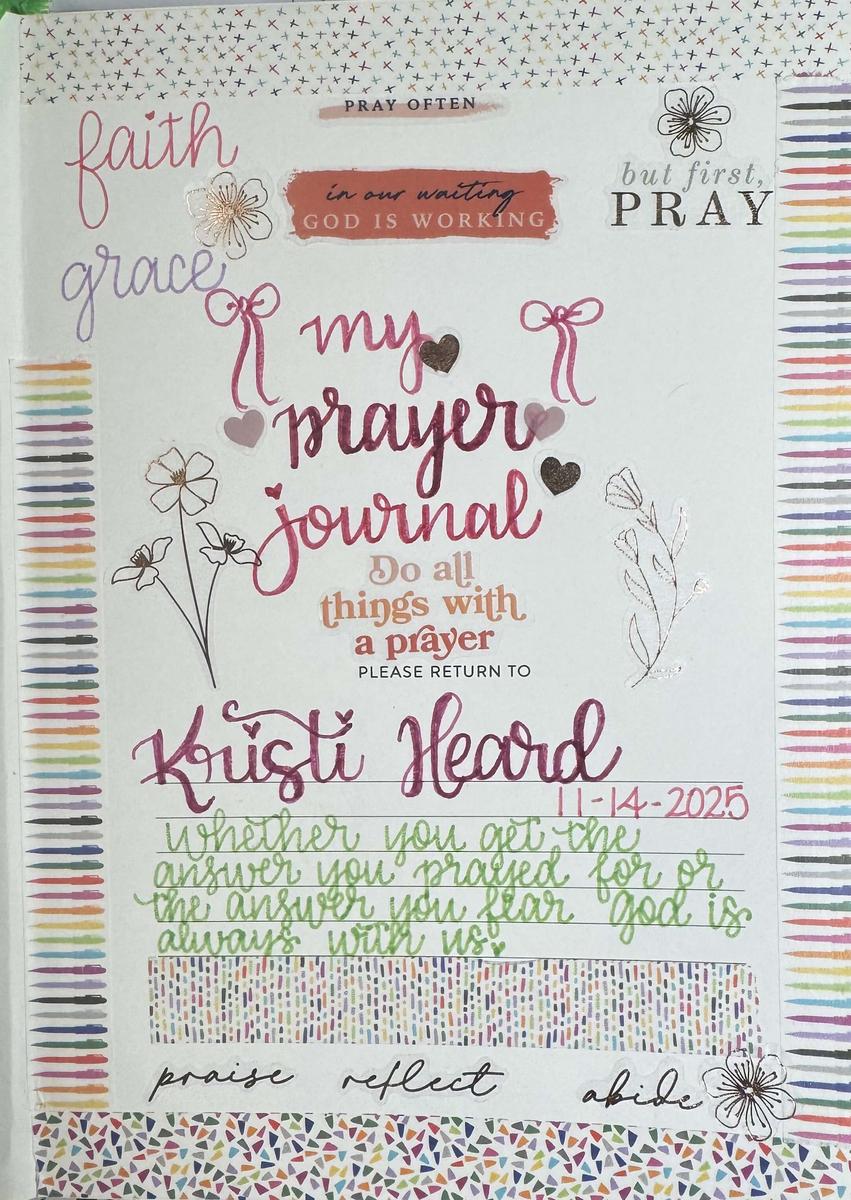 PRAY OFTEN
faith
in our waiting
GOD IS WORKING
but first,
PRAY
grace
my
prayer
journal
Do all
things with
a prayer
PLEASE RETURN TO
Kristi Heard
11-14-2025
Whether you get the
answer you prayed for or
the answer you fear god is
always with us
praise reflect abide